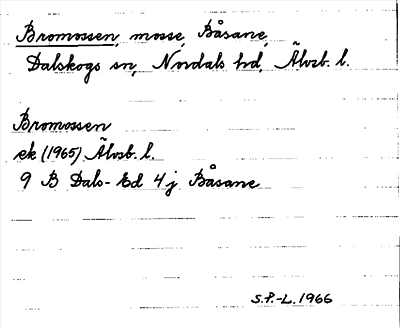 Bromossen, mosse, Båsane,
Dalskogs sn, Nordals hd, Älvsb. l.
Bromossen
ek (1965) Älvsb. l.
9 B Dals-Ed 4 j Båsane
S.P.-L. 1966